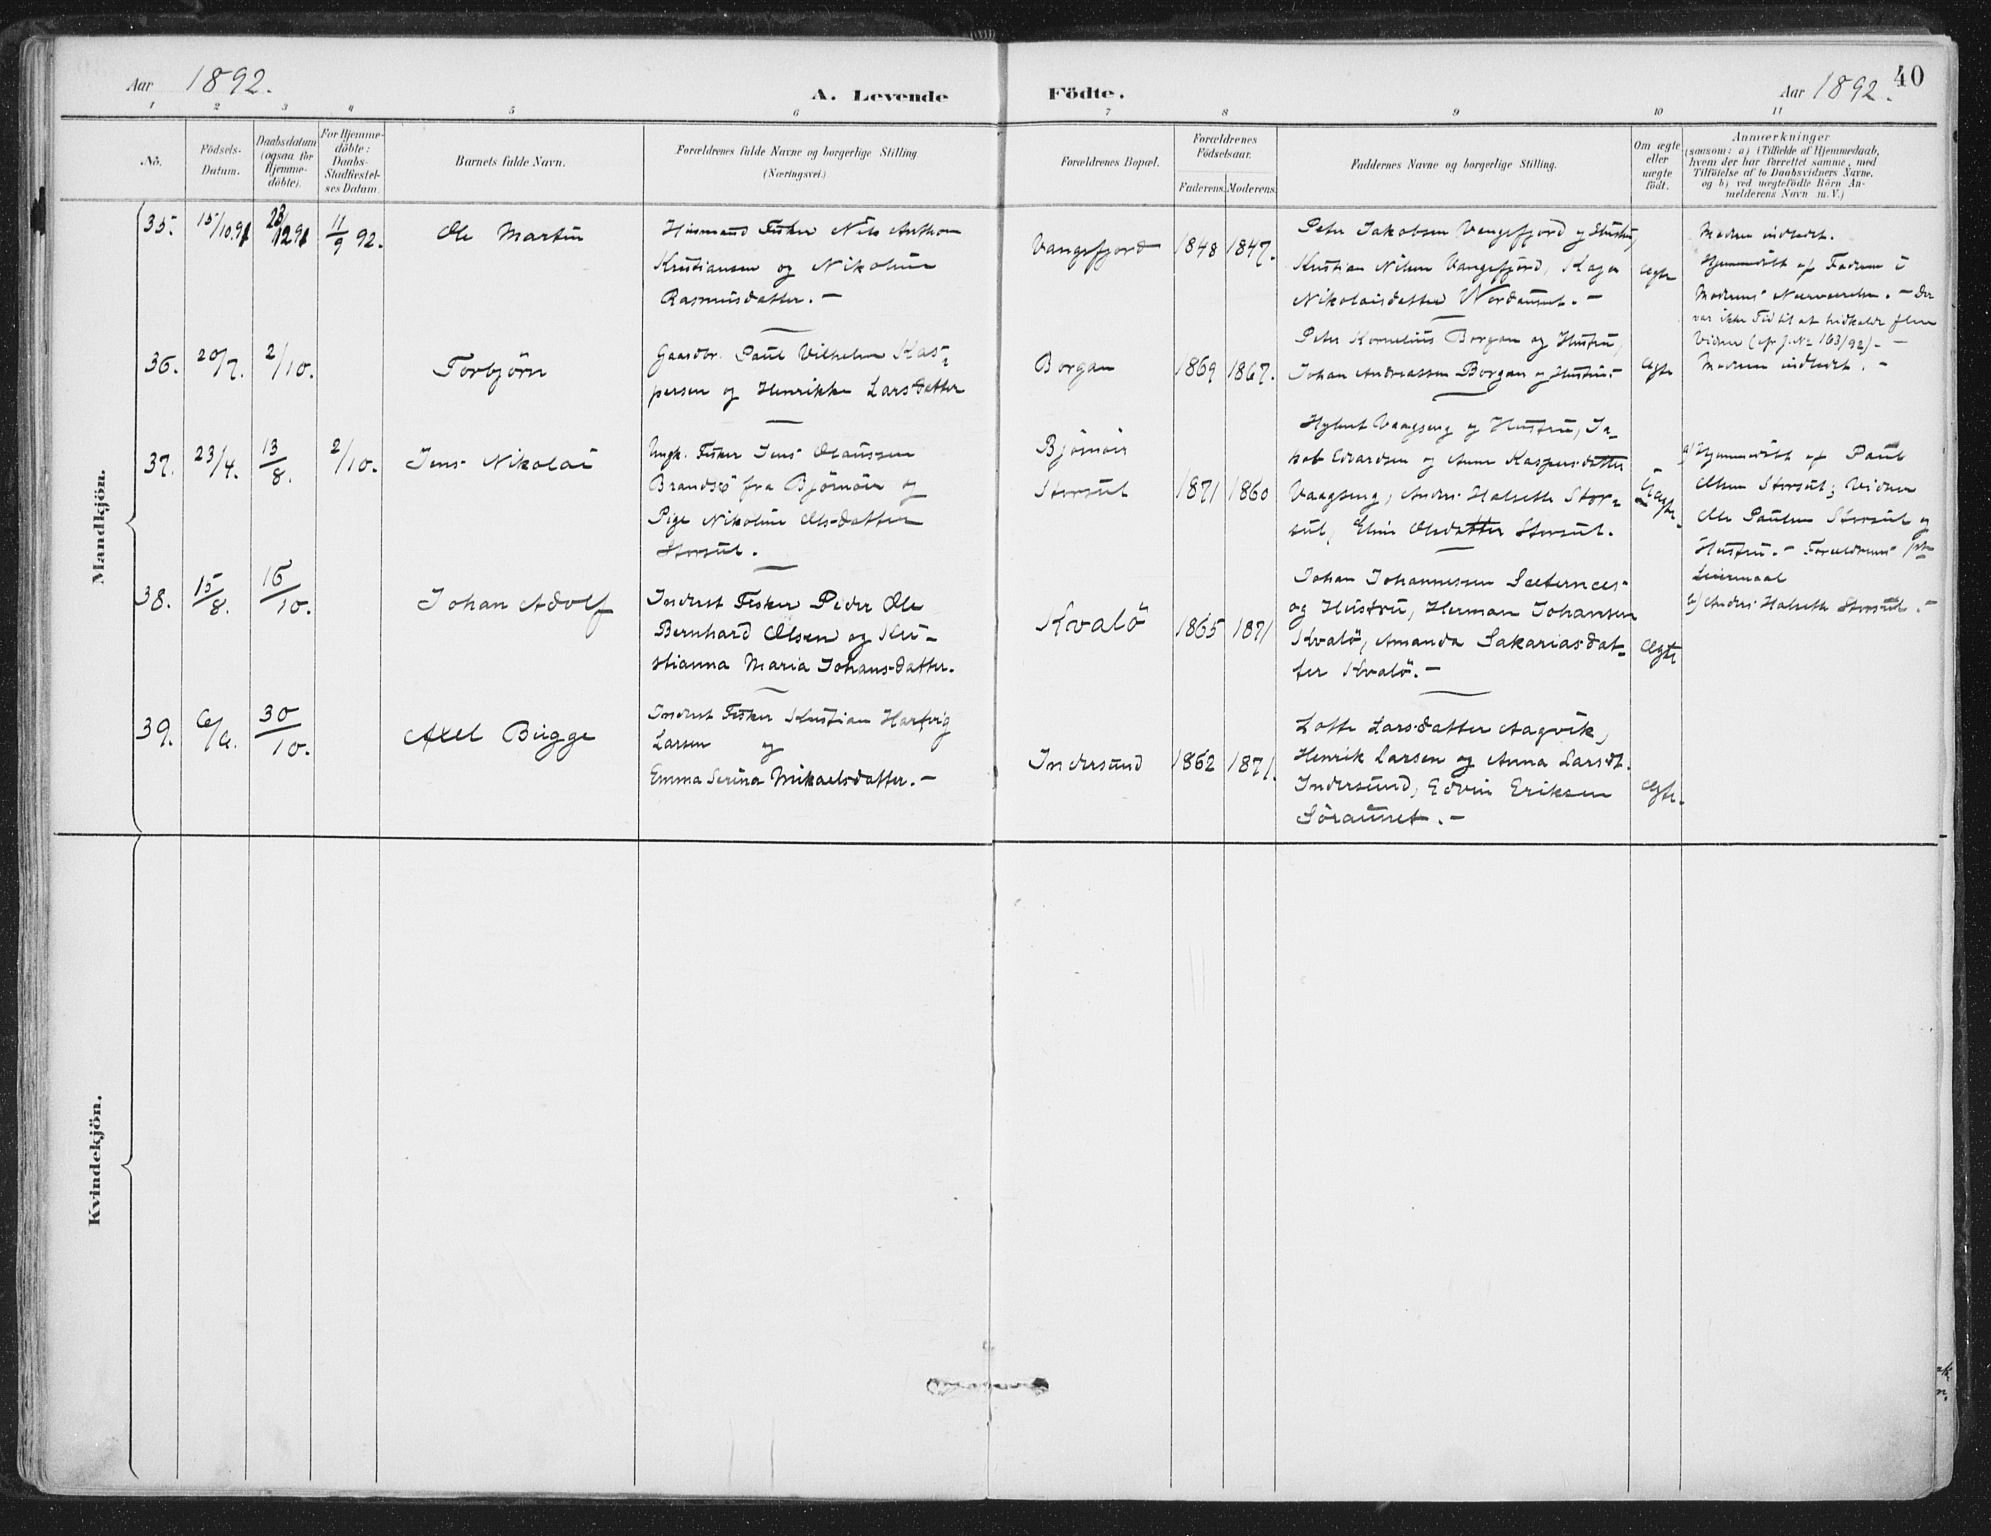 Aar 1892.
A. Levende Födte.
Aar 1892.
40
1 2 3 4 5 6 7 8 9 10 11
No.
Födsels-Datum.
Daabsdatum (ogsaa for Hjemme-döbte).
For Hjemme-döbte: Daabs-Stadfæstel-ses Datum.
Barnets fulde Navn.
Forældrenes fulde Navne og borgerlige Stilling.
(Næringsvei.)
Forældrenes Bopæl.
Forældrenes Födselsaar.
Faderens. Moderens.
Faddernes Navne og borgerlige Stilling.
Om ægte eller uægte födt.
Anmærkninger
(saasom: a) i Tilfælde af Hjemmedaab,
hvem der har forrettet samme, med
Tilföielse af to Daabsvidners Navne.
og b) ved uægtefödte Börn An-
melderens Navn m. V.)
Mandkjön.
35. 15/10.91 28/12 91 11/9 92. Ole Martin
Husmand Fisker Nils Anthon
Kristiansen og Nikoline
Rasmusdatter. —
Vangsfjord 1848 1847.
Peter Jakobsen Vangsfjord og Hustru,
Kristian Nilsen Vangsfjord, Kaja
Nikolaisdatter Nordaunet. —
Ægte
Modren indledet.
Hjemmedöbt af Fadren i
Modrens Nærværelse. — Der
var ikke Tid til at tilkalde flere
Vidner (cfr J. No 163/92). —
36. 20/7. 2/10. Torbjörn
Gaardbr. Paul Vilhelm Kas-
persen og Henrikke Larsdatter
Borgan 1869 1867.
Peter Kornelius Borgan og Hustru,
Johan Andreassen Borgan og Hustru
Ægte
Modren indledet. —
37. 23/4. 13/8. 2/10. Jens Nikolai
Ungk. Fisker Jens Olaussen
Brandsö fra Björnöer og
Pige Nikoline Olsdatter
Storsul.
Björnöer
Storsul 1871 1860
Vaagseng og Hustru, Ja-
kob Edvardsen og Anne Kaspersdatter
Vaagseng, Anders Halseth Stor-
sul, Elen Olsdatter Storsul.
Uægte.
a) Hjemmedöbt af Paul
Olsen Storsul; Vidner
Ole Paulsen Storsul og
Hustru. — Forældrenes 1ste
Leiermaal
b) Anders Halseth Storsul. —
38. 15/8. 16/10. Johan Adolf
Inderst Fisker Peder Ole
Bernhard Olsen og Kri-
stianna Maria Johansdatter.
Kvalö 1865 1871
Johan Johannessen Sæternes
og Hustru, Herman Johansen
Kvalö, Amanda Sakariasdat-
ter Kvalö. —
Ægte
39. 6/6. 30/10. Axel Bugge
Inderst Fisker Kristian Hartvig
Larsen og
Emma Serina Mikaelsdatter. —
Indersund 1862 1871.
Lotte Larsdatter Aagvik,
Henrik Larsen og Anna Larsdt.
Indersund, Edvin Eriksen
Söraunet. —
Ægte.
Kvindekjön.